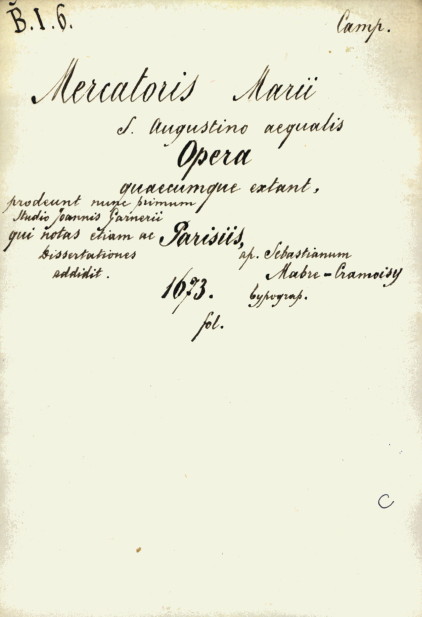 B.I.6. Camp.
Mercatoris Marii
S. Augustino aequalis
Opera
quaecumque extant,
prodeunt nunc primum
studio Joannis Garnerii
qui notas etiam ac Parisiis,
Dissertationes ap. Sebastianum
addidit. Mabre-Cramoisy
1673. typograp.
fol.
C